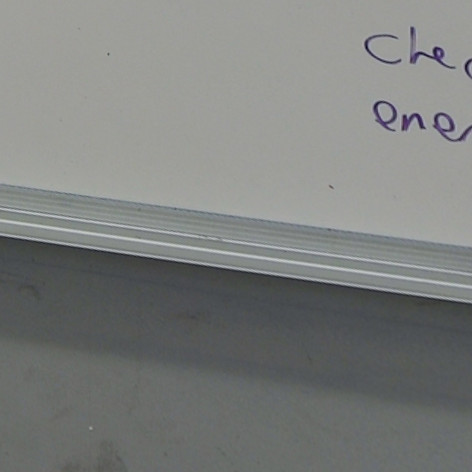 Chec
ener